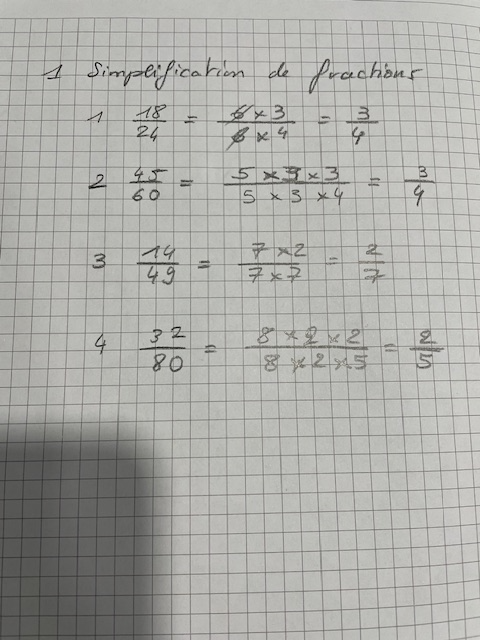 1 Simplification de fractions
1 18/24 = 6 x 3 / 6 x 4 = 3/4
2 45/60 = 5 x 3 x 3 / 5 x 3 x 4 = 3/4
3 14/49 = 7 x 2 / 7 x 7 = 2/7
4 32/80 = 8 x 2 x 2 / 8 x 2 x 5 = 2/5